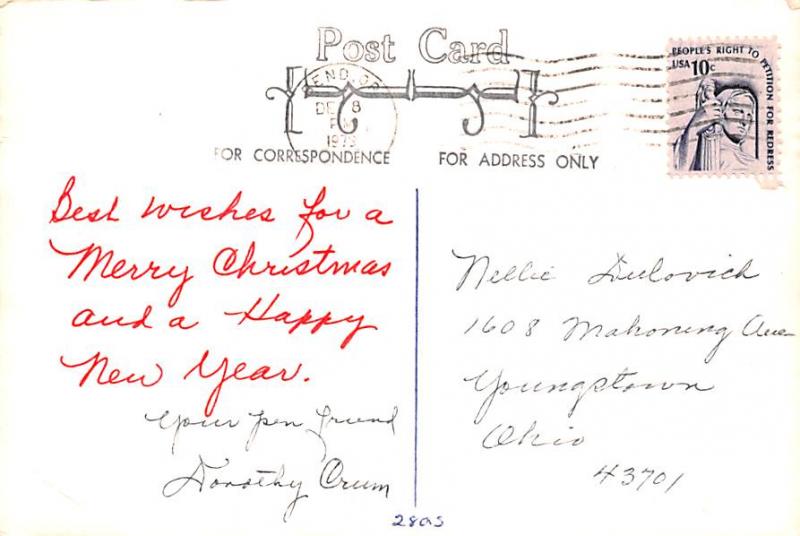 Post Card
BEND, OR
DEC 8
PM
1979
PEOPLE'S RIGHT TO PETITION FOR REDRESS
USA 10c
FOR CORRESPONDENCE
FOR ADDRESS ONLY
Best wishes for a
Merry Christmas
and a Happy
New Year.
Your pen friend
Dorothy Crum
Nellie Dulovich
1608 Mahoning Ave
Youngstown
Ohio
43701
280s